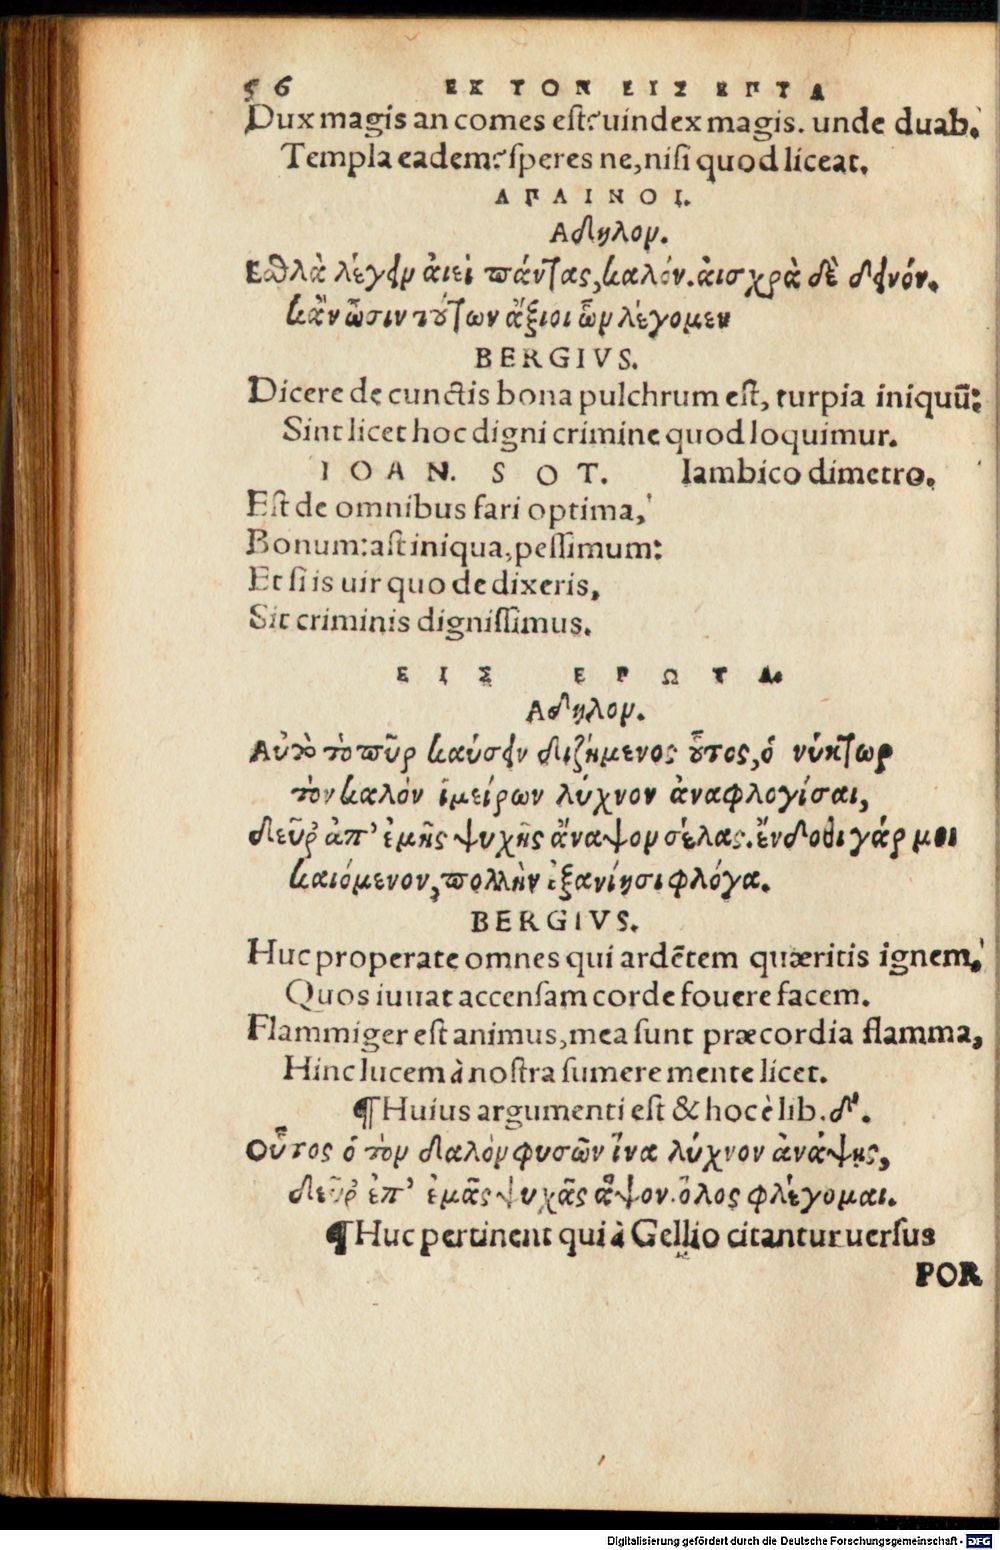 56 ΕΚ ΤΟΝ ΕΙΣ ΕΠΤΑ
Dux magis an comes est? uindex magis. unde duab.
Templa eadem? speres ne, nisi quod liceat.
ΑΠΑΙΝΟΙ.
Αδηλον.
Εσθλὰ λέγειν ἀιεὶ πάντας, καλόν. ἀισχρὰ δὲ δεινόν.
κἂν ὦσιν τούτων ἄξιοι ὧν λέγομεν
BERGIVS.
Dicere de cunctis bona pulchrum est, turpia iniquũ:
Sint licet hoc digni crimine quod loquimur.
IOAN. SOT. Iambico dimetro.
Est de omnibus fari optima,
Bonum: ast iniqua, pessimum:
Et si is uir quo de dixeris,
Sit criminis dignissimus.
ΕΙΣ ΕΡΩΤΑ.
Αδηλον.
Αὐτὸ τὸ πῦρ καύσειν διζήμενος οὗτος, ὁ νύκτωρ
τὸν καλὸν ἱμείρων λύχνον ἀναφλογίσαι,
δεῦρ ἀπ' ἐμῆς ψυχῆς ἄναψον σέλας. ἔνδοθι γάρ μοι
καιόμενον, πολλὴν ἐξανίησι φλόγα.
BERGIVS.
Huc properate omnes qui ardẽtem quæritis ignem,
Quos iuuat accensam corde fouere facem.
Flammiger est animus, mea sunt præcordia flamma,
Hinc lucem à nostra sumere mente licet.
¶Huius argumenti est & hoc è lib. δ'.
Οὗτος ὁ τὸν δαλὸν φυσῶν ἵνα λύχνον ἀνάψῃς,
δεῦρ ἐπ' ἐμᾶς ψυχᾶς ἅψον. ὅλος φλέγομαι.
¶Huc pertinent qui à Gellio citantur uersus
POR
Digitalisierung gefördert durch die Deutsche Forschungsgemeinschaft - DFG